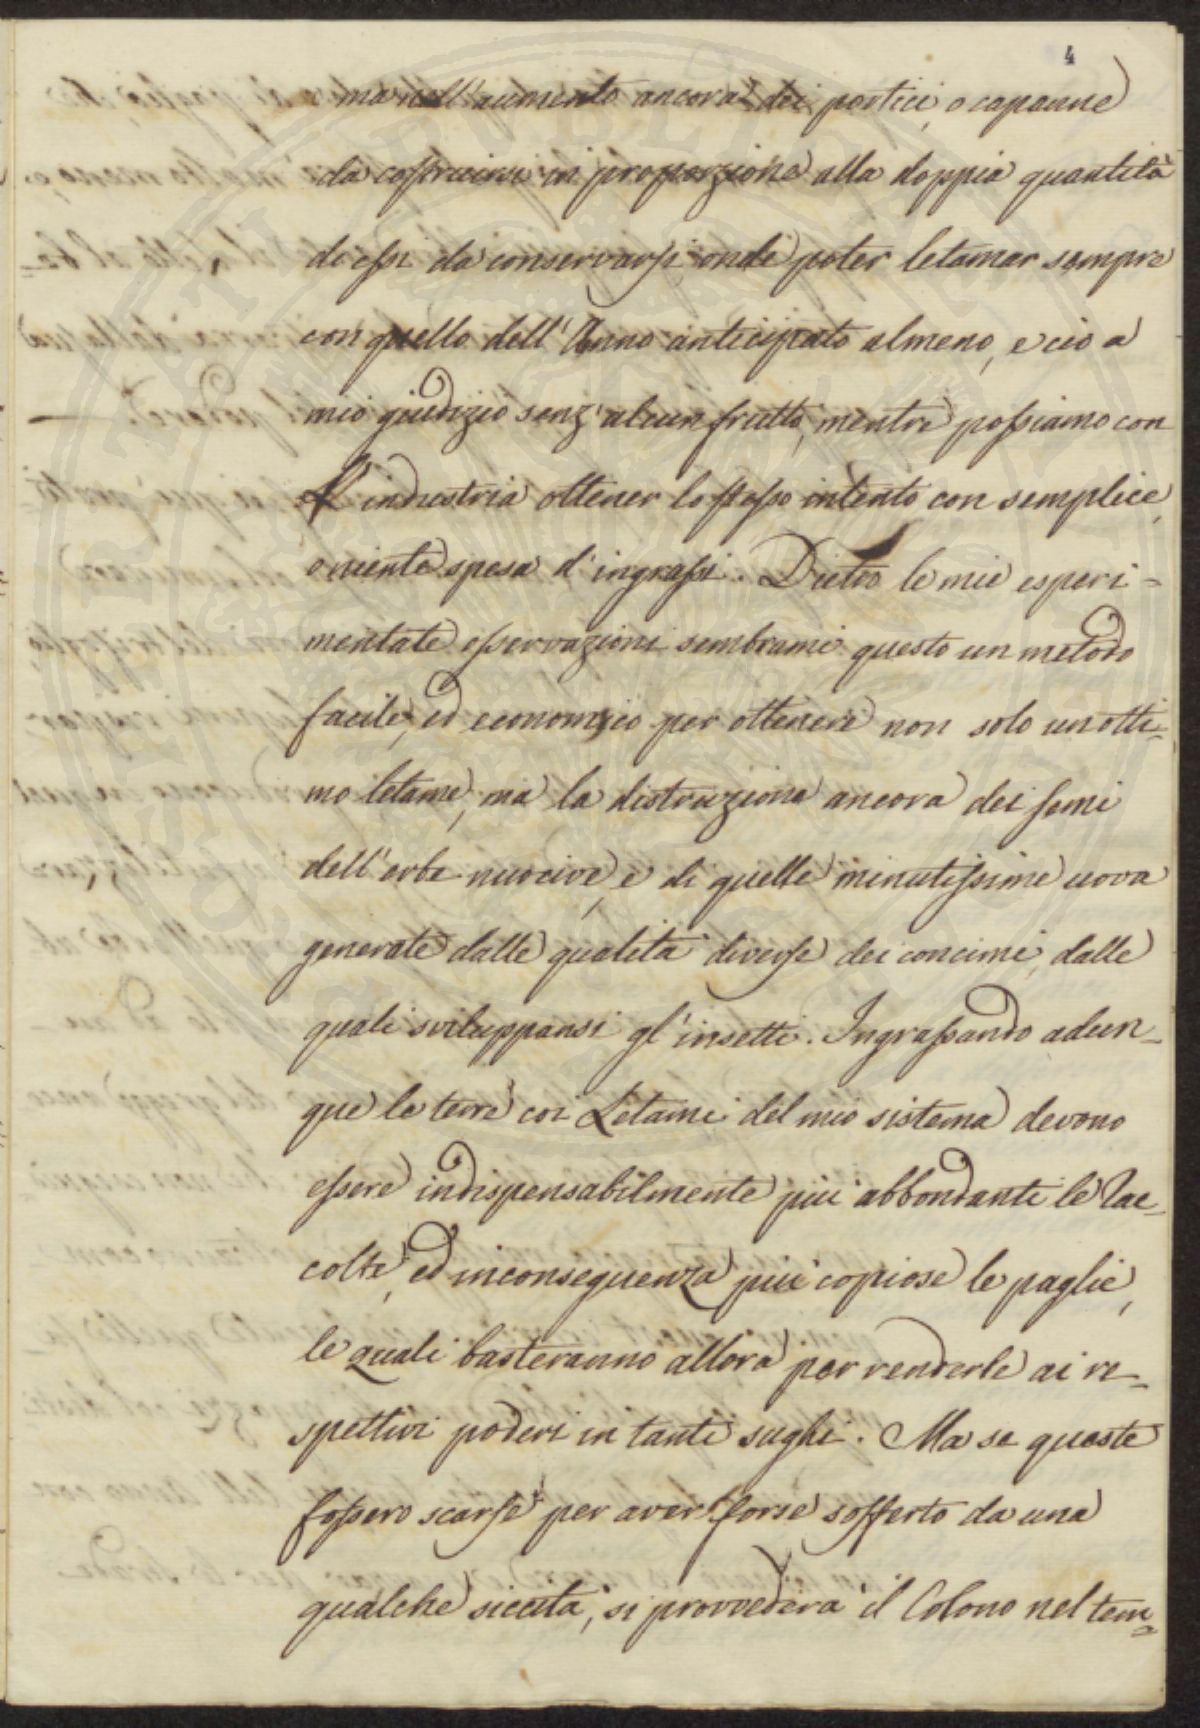 4
e ma nell'aumento ancora dei portici, o capanne
da costruirsi in proporzione alla doppia quantità
di essi da conservarsi onde poter letamar sempre
con quello dell'Anno anticipato almeno, e ciò a
mio giudizio senz'alcun frutto, mentre possiamo con
l'industria ottener lo stesso intento con semplice,
o niente spesa d'ingrassi. Dietro le mie esperi-
mentate osservazioni sembrami questo un metodo
facile, ed economico per ottenere non solo un otti-
mo letame, ma la distruzione ancora dei semi
dell'erbe nuocive, e di quelle minutissime uova
generate dalle qualità diverse dei concimi, dalle
quali sviluppansi gl'insetti. Ingrassando adun-
que le terre coi Letami del mio sistema devono
essere indispensabilmente più abbondanti le Rac-
colte, ed inconseguenza più copiose le paglie,
le quali basteranno allora per renderle ai re-
spettivi poderi in tanti sughi. Ma se queste
fossero scarse per aver forse sofferto da una
qualche siccità, si provvederà il Colono nel tem-